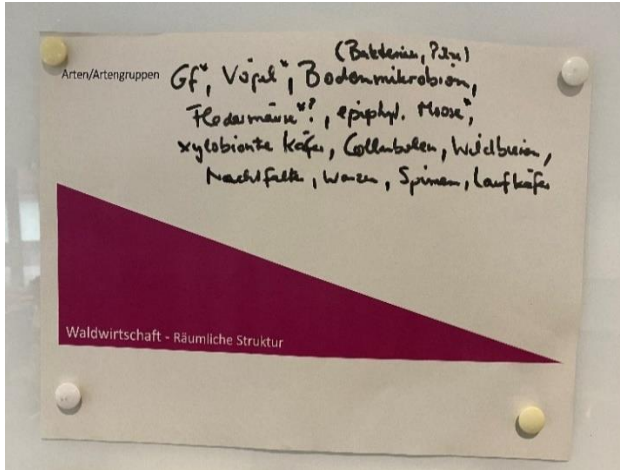 (Bakterien, Pilze)
Arten/Artengruppen Gf*, Vögel*, Bodenmikrobiom,
Fledermäuse*?, epiphyt. Moose*,
xylobionte Käfer, Collembolen, Wildbienen,
Nachtfalter, Wanzen, Spinnen, Laufkäfer
Waldwirtschaft - Räumliche Struktur